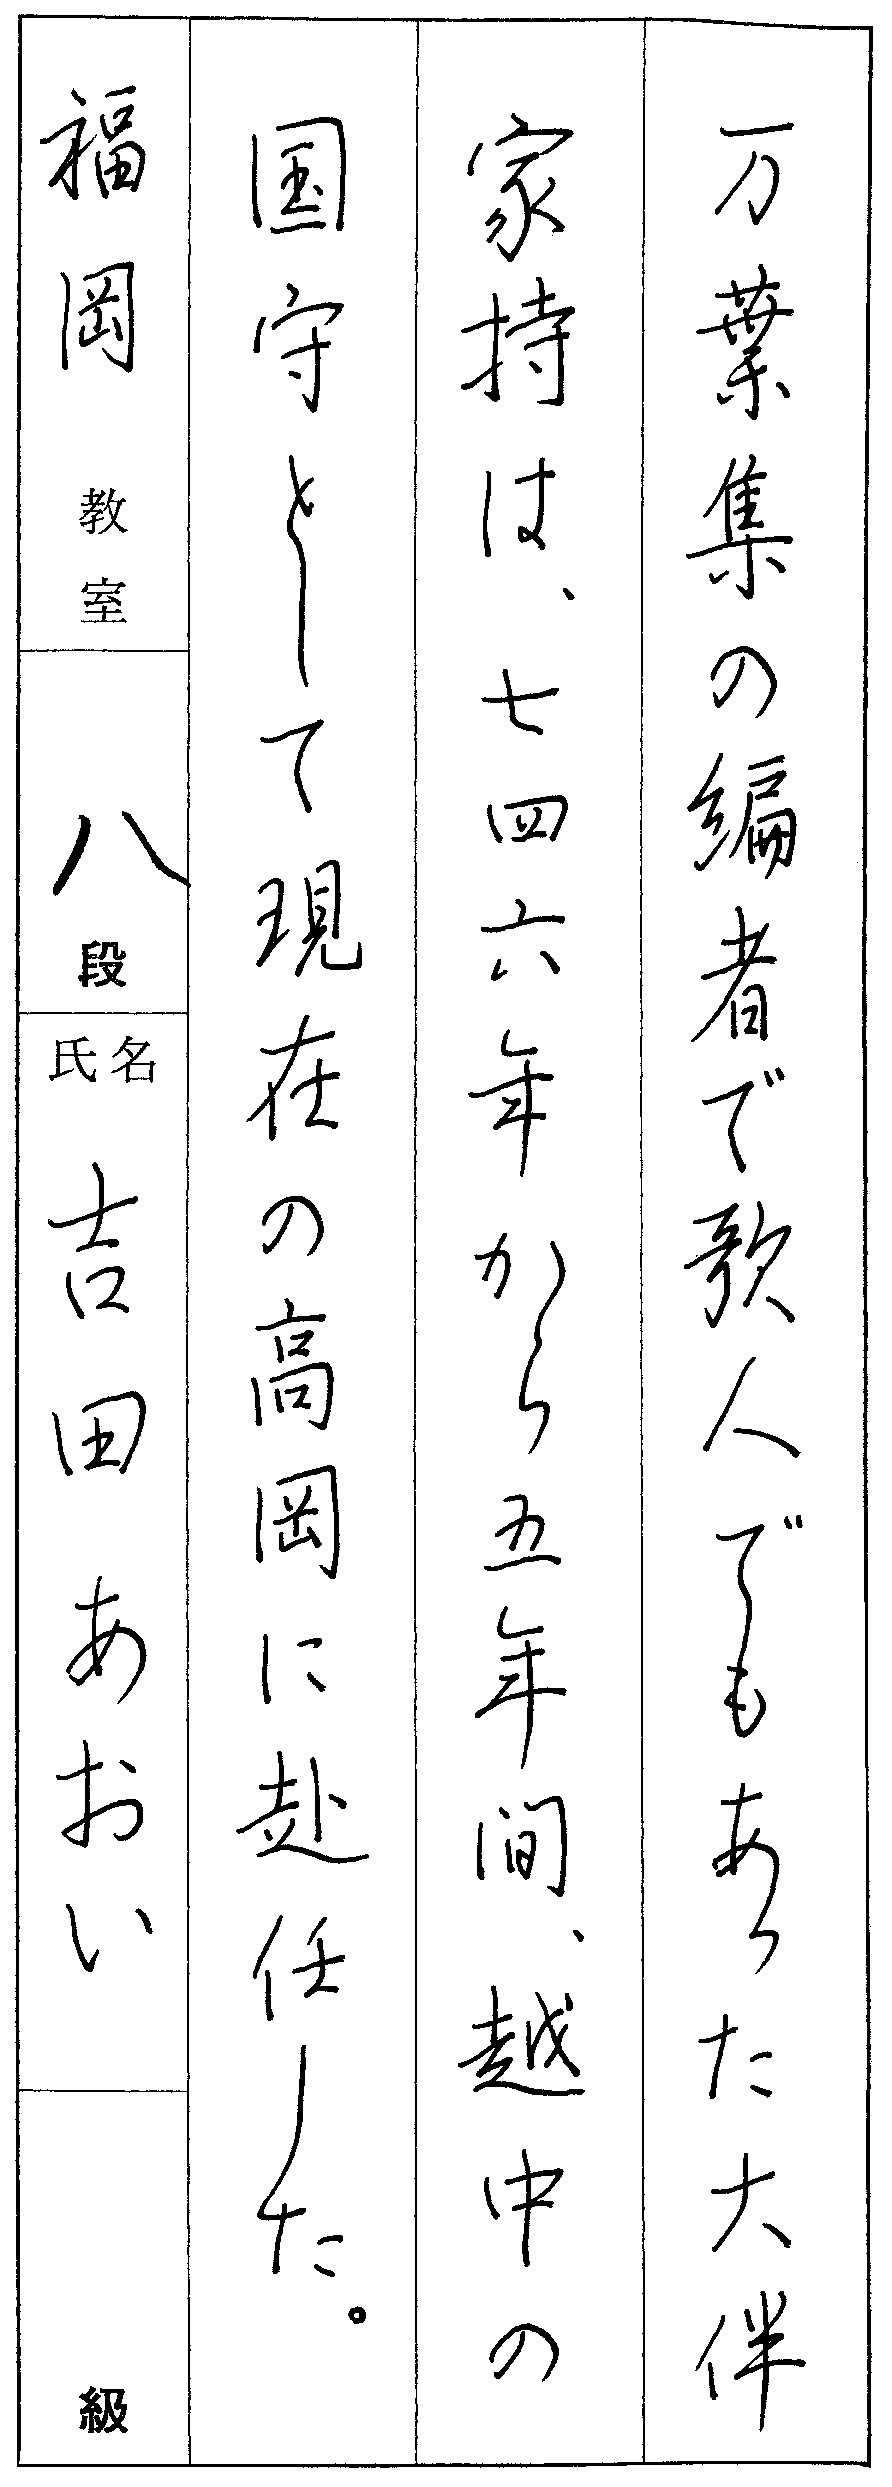 万葉集の編者で歌人でもあった大伴
家持は、七四六年から五年間、越中の
国守として現在の高岡に赴任した。
福岡教室
八段
氏名
吉田あおい
級